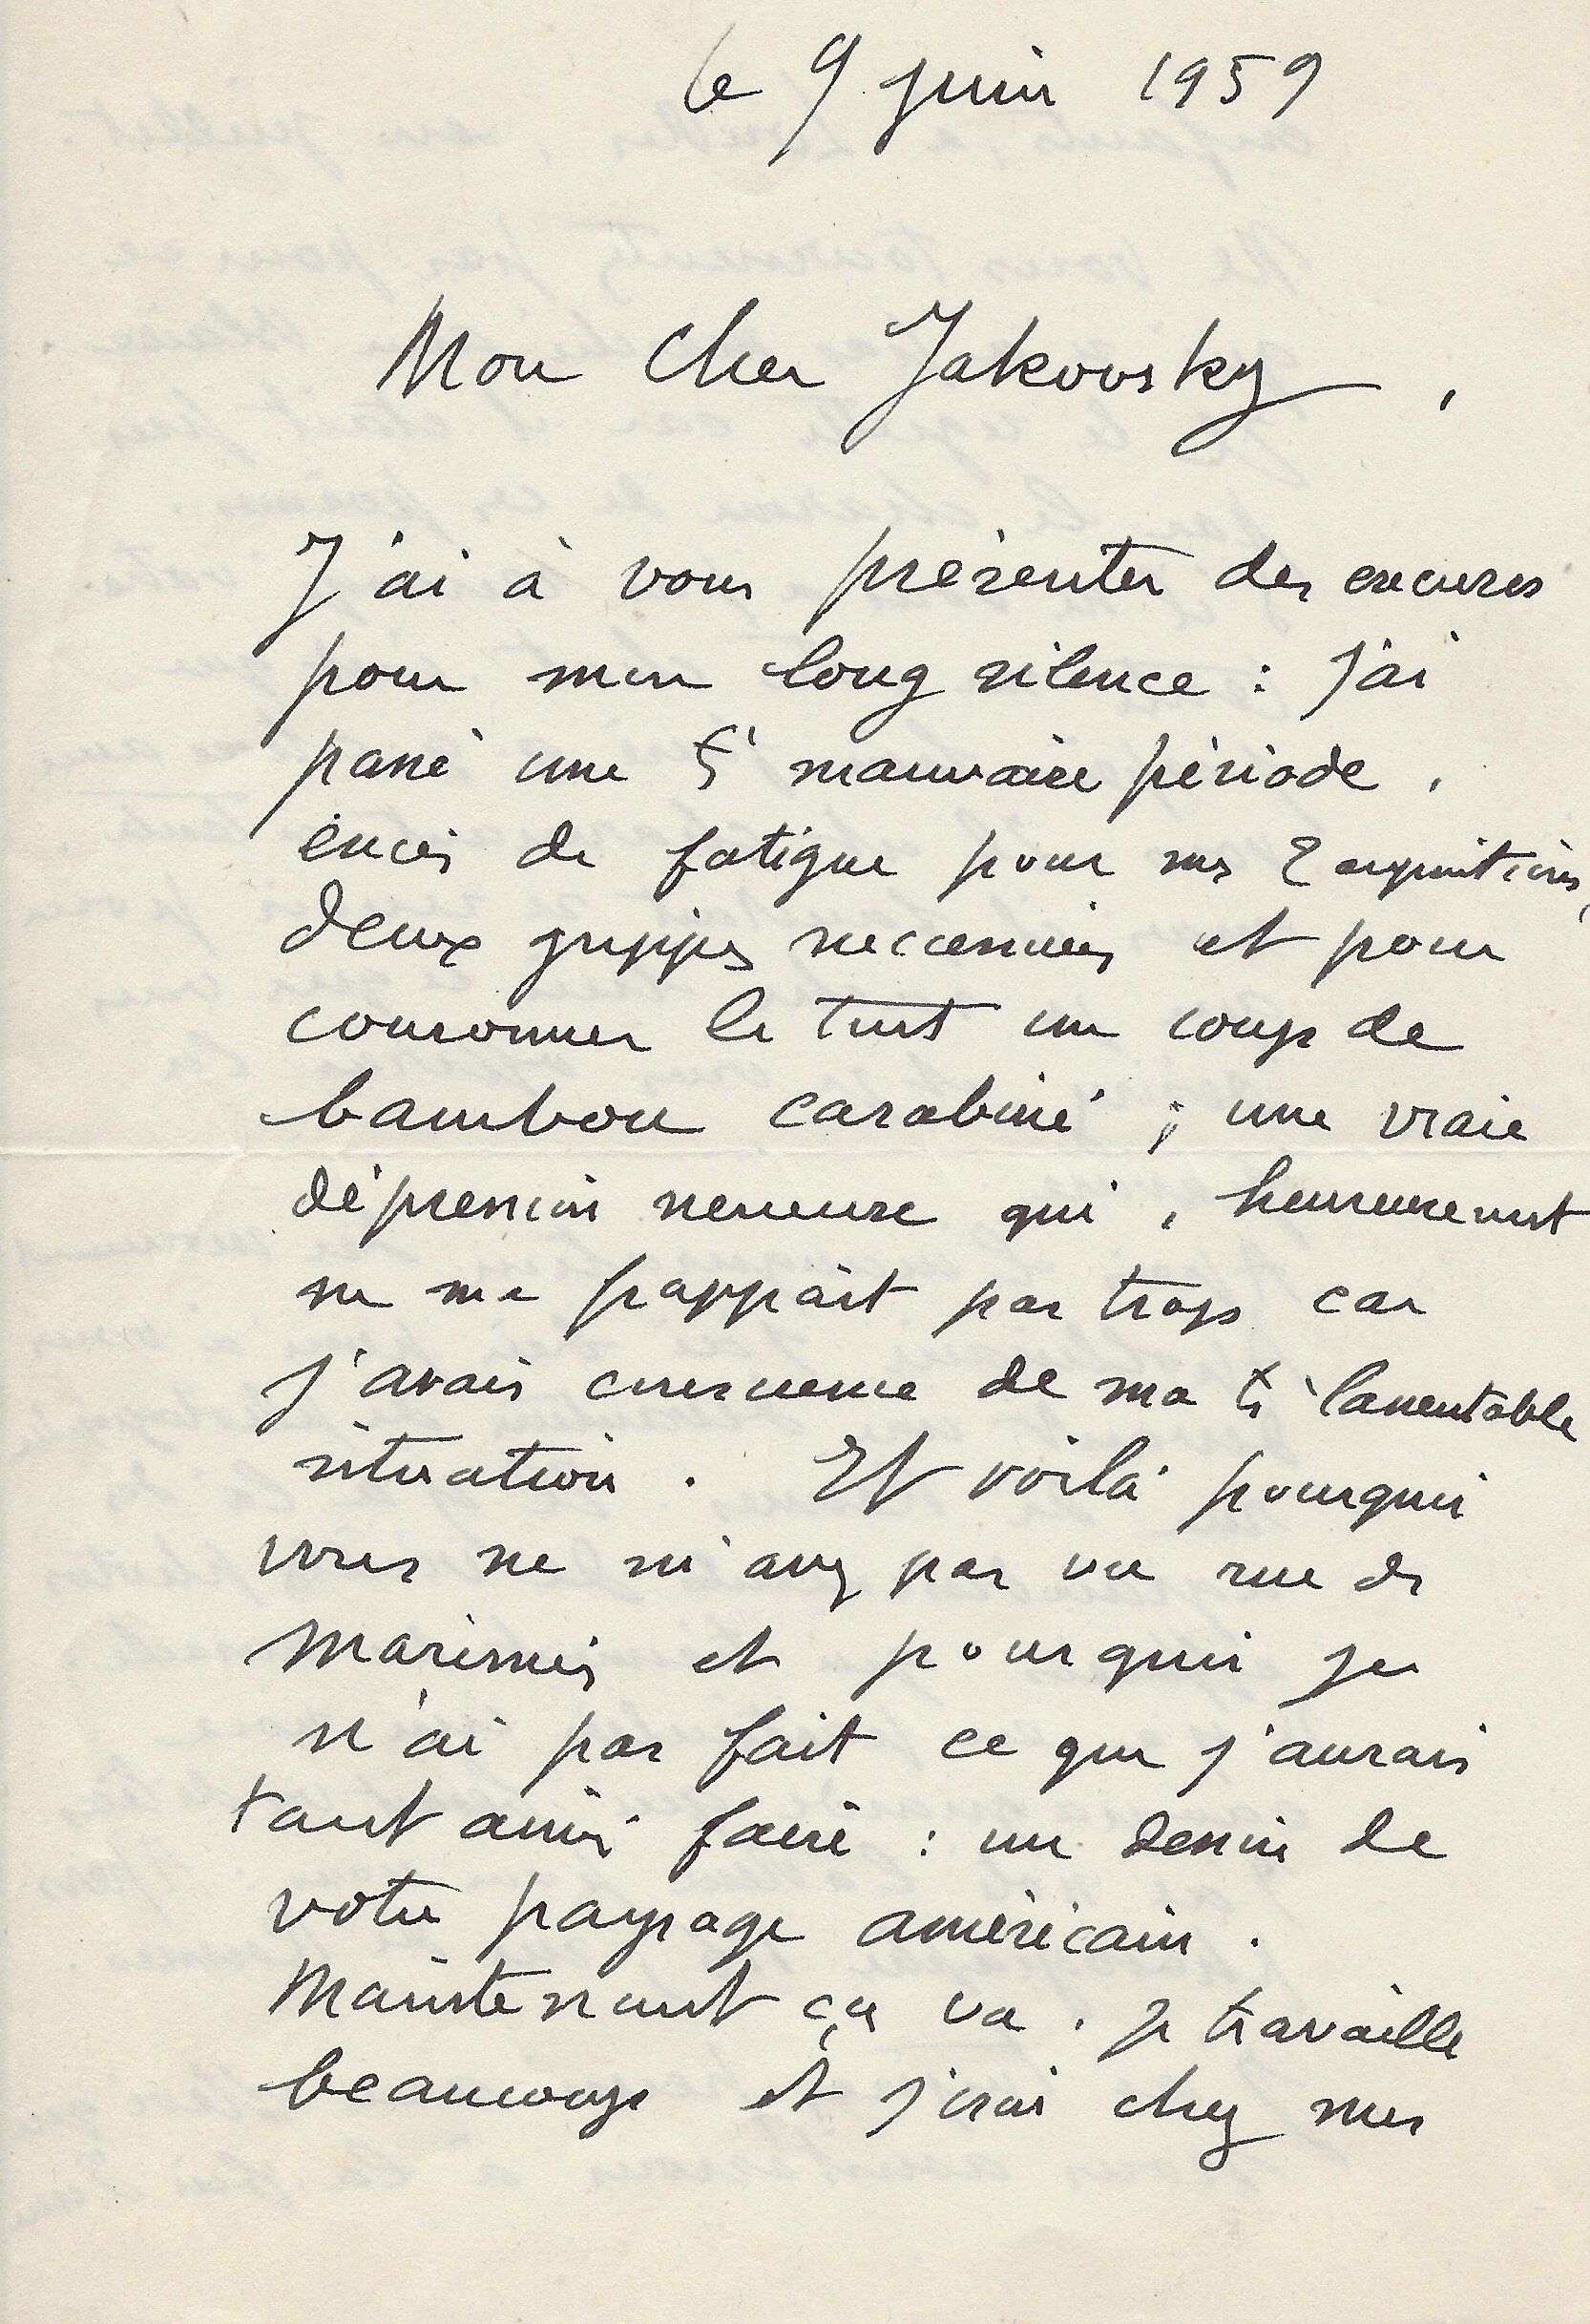 le 9 juin 1959
Mon cher Jakovsky,
J'ai à vous présenter des excuses
pour mon long silence : j'ai
passé une ts mauvaise période,
excès de fatigue pour mes 2 expositions,
deux grippes successives et pour
couronner le tout un coup de
bambou carabiné ; une vraie
dépression nerveuse qui, heureusement
ne me frappait pas trop car
j'avais conscience de ma ts lamentable
situation. Et voilà pourquoi
vous ne m'avez pas vu rue des
Marisniers et pourquoi je
n'ai pas fait ce que j'aurais
tant aimé faire : un dessin de
votre paysage américain.
Maintenant ça va. je travaille
beaucoup et j'irai chez mes